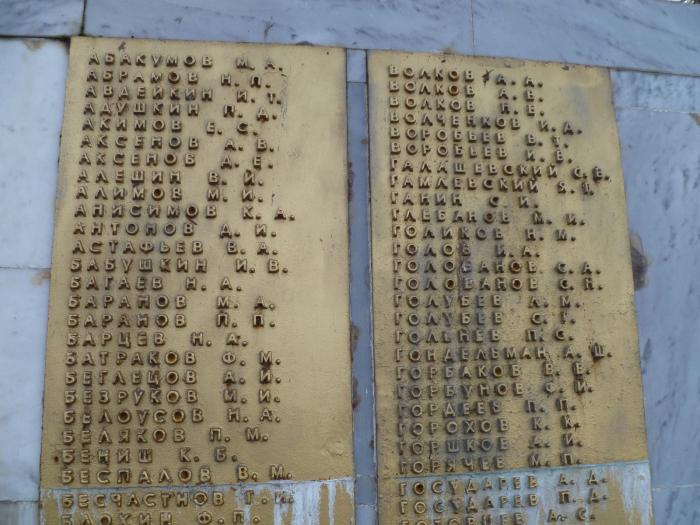 АБАКУМОВ М. А.
АБРАМОВ Н. П.
АВДЕЙКИН И. Т.
АДУШКИН П. Д.
АКИМОВ Е. С.
АКСЕНОВ А. В.
АКСЕНОВ Д. Е.
АЛЕШИН В. И.
АЛИМОВ М. И.
АНИСИМОВ К. А.
АНТОНОВ Д. И.
АСТАФЬЕВ В. А.
БАБУШКИН И. В.
БАГАЕВ Н. А.
БАРАНОВ М. А.
БАРАНОВ П. П.
БАРЦЕВ Н. А.
БАТРАКОВ Ф. М.
БЕГЛЕЦОВ А. И.
БЕЗРУКОВ М. И.
БЕЛОУСОВ Н. А.
БЕЛЯКОВ П. М.
БЕНИШ К. Б.
БЕСПАЛОВ В. М.
БЕСЧАСТНОВ Г. И.
БЛОХИН Ф. П.
ВОЛКОВ А. А.
ВОЛКОВ А. В.
ВОЛКОВ Н. Е.
ВОЛЧЕНКОВ И. Д.
ВОРОБЬЕВ В. Т.
ВОРОБЬЕВ И. Е.
ГАЛАШЕВСКИЙ С. Е.
ГАМЛЕВСКИЙ Я.
ГАНИН С. И.
ГЛЕБАНОВ М. И.
ГОЛИКОВ Н. М.
ГОЛОВ И. А.
ГОЛОВАНОВ С. А.
ГОЛОВАНОВ С. Я.
ГОЛУБЕВ Л. М.
ГОЛУБЕВ С. Г.
ГОЛЬНЕВ П. С.
ГОНДЕЛЬМАН А. Ш.
ГОРБАКОВ В. В.
ГОРБУНОВ С. И.
ГОРДЕЕВ П. П.
ГОРОХОВ К. К.
ГОРШКОВ А. И.
ГОРЯЧЕВ М. П.
ГОСУДАРЕВ А. Д.
ГОСУДАРЕВ П. Д.
ГОТОВЦЕВ А. С.